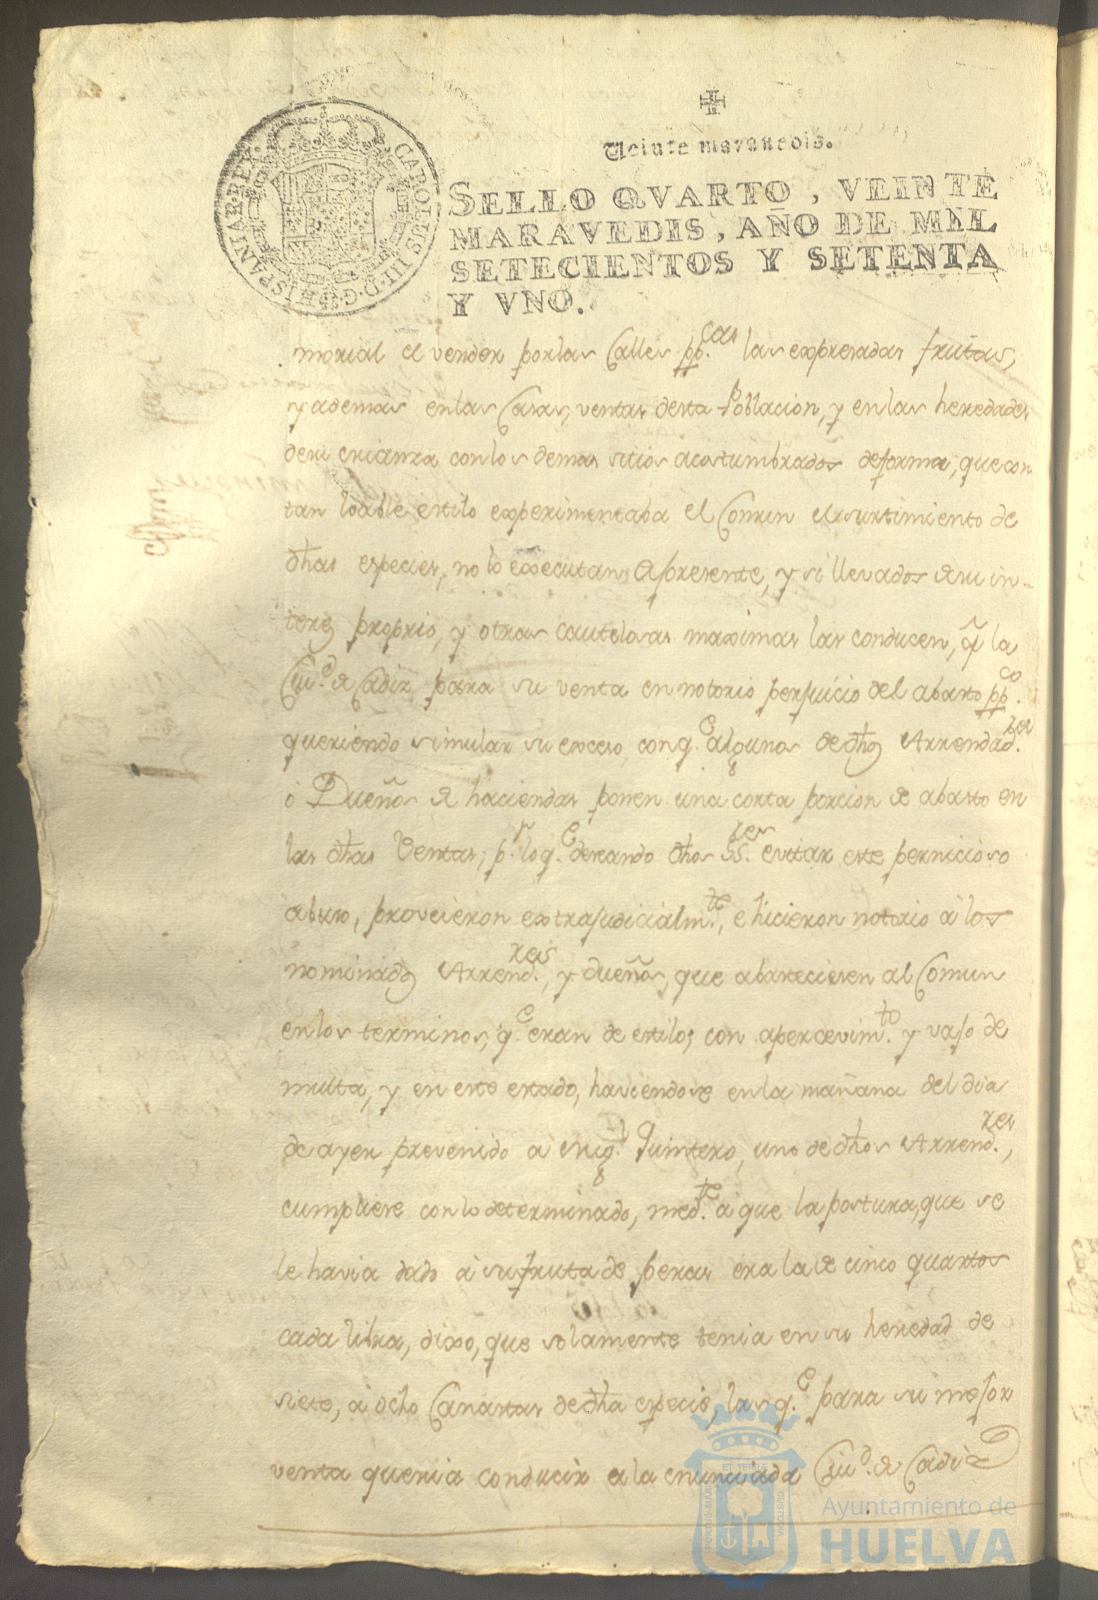 CAROLUS III D. G. HISPANIAR. REX.
Veinte maravedis.
SELLO QVARTO, VEINTE
MARAVEDIS, AÑO DE MIL
SETECIENTOS Y SETENTA
Y VNO.
morial el vender por las Calles pp.cas las expresadas frutas,
y ademas en las Casas, ventas desta Poblacion, y en las heredades
de su crianza con los demas sitios acostumbrados de forma, que con
tan loable estilo experimentaba el Comun el surtimiento de
dhas especies, no lo executan apresente, y si llevados de su in-
teres proprio, y otras cautelosas maximas las conducen, la
Ciu.d de Cadiz para su venta en notorio perjuicio del abasto pp.co
queriendo simular su exceso, con q.e algunos de dhos Arrendad.res
o Dueños de haciendas ponen una corta porcion de abasto en
las dhas Ventas; p.r lo q.e deseando dhos SS.res evitar este pernicioso
abuso, proveieron extrajudicialm.te, e hicieron notorio à los
nominados Arrend.res, y dueños, que abasteciesen al Comun
en los terminos, q.e eran de estilo, con apercevim.to y vajo de
multa, y en este estado, haviendose en la mañana del dia
de ayer prevenido à Mig.l Quintero, uno de dhos Arrend.res,
cumpliese con lo determinado, med.te a que la postura, que se
le havia dado à su fruta de peras era la de cinco quartos
cada libra, dixo, que solamente tenia en su heredad de
siete, à ocho Canastas de dha especie, las q.e para su mejor
venta queria conducir a la enunciada Ciu.d de Cadiz
Ayuntamiento de
HUELVA